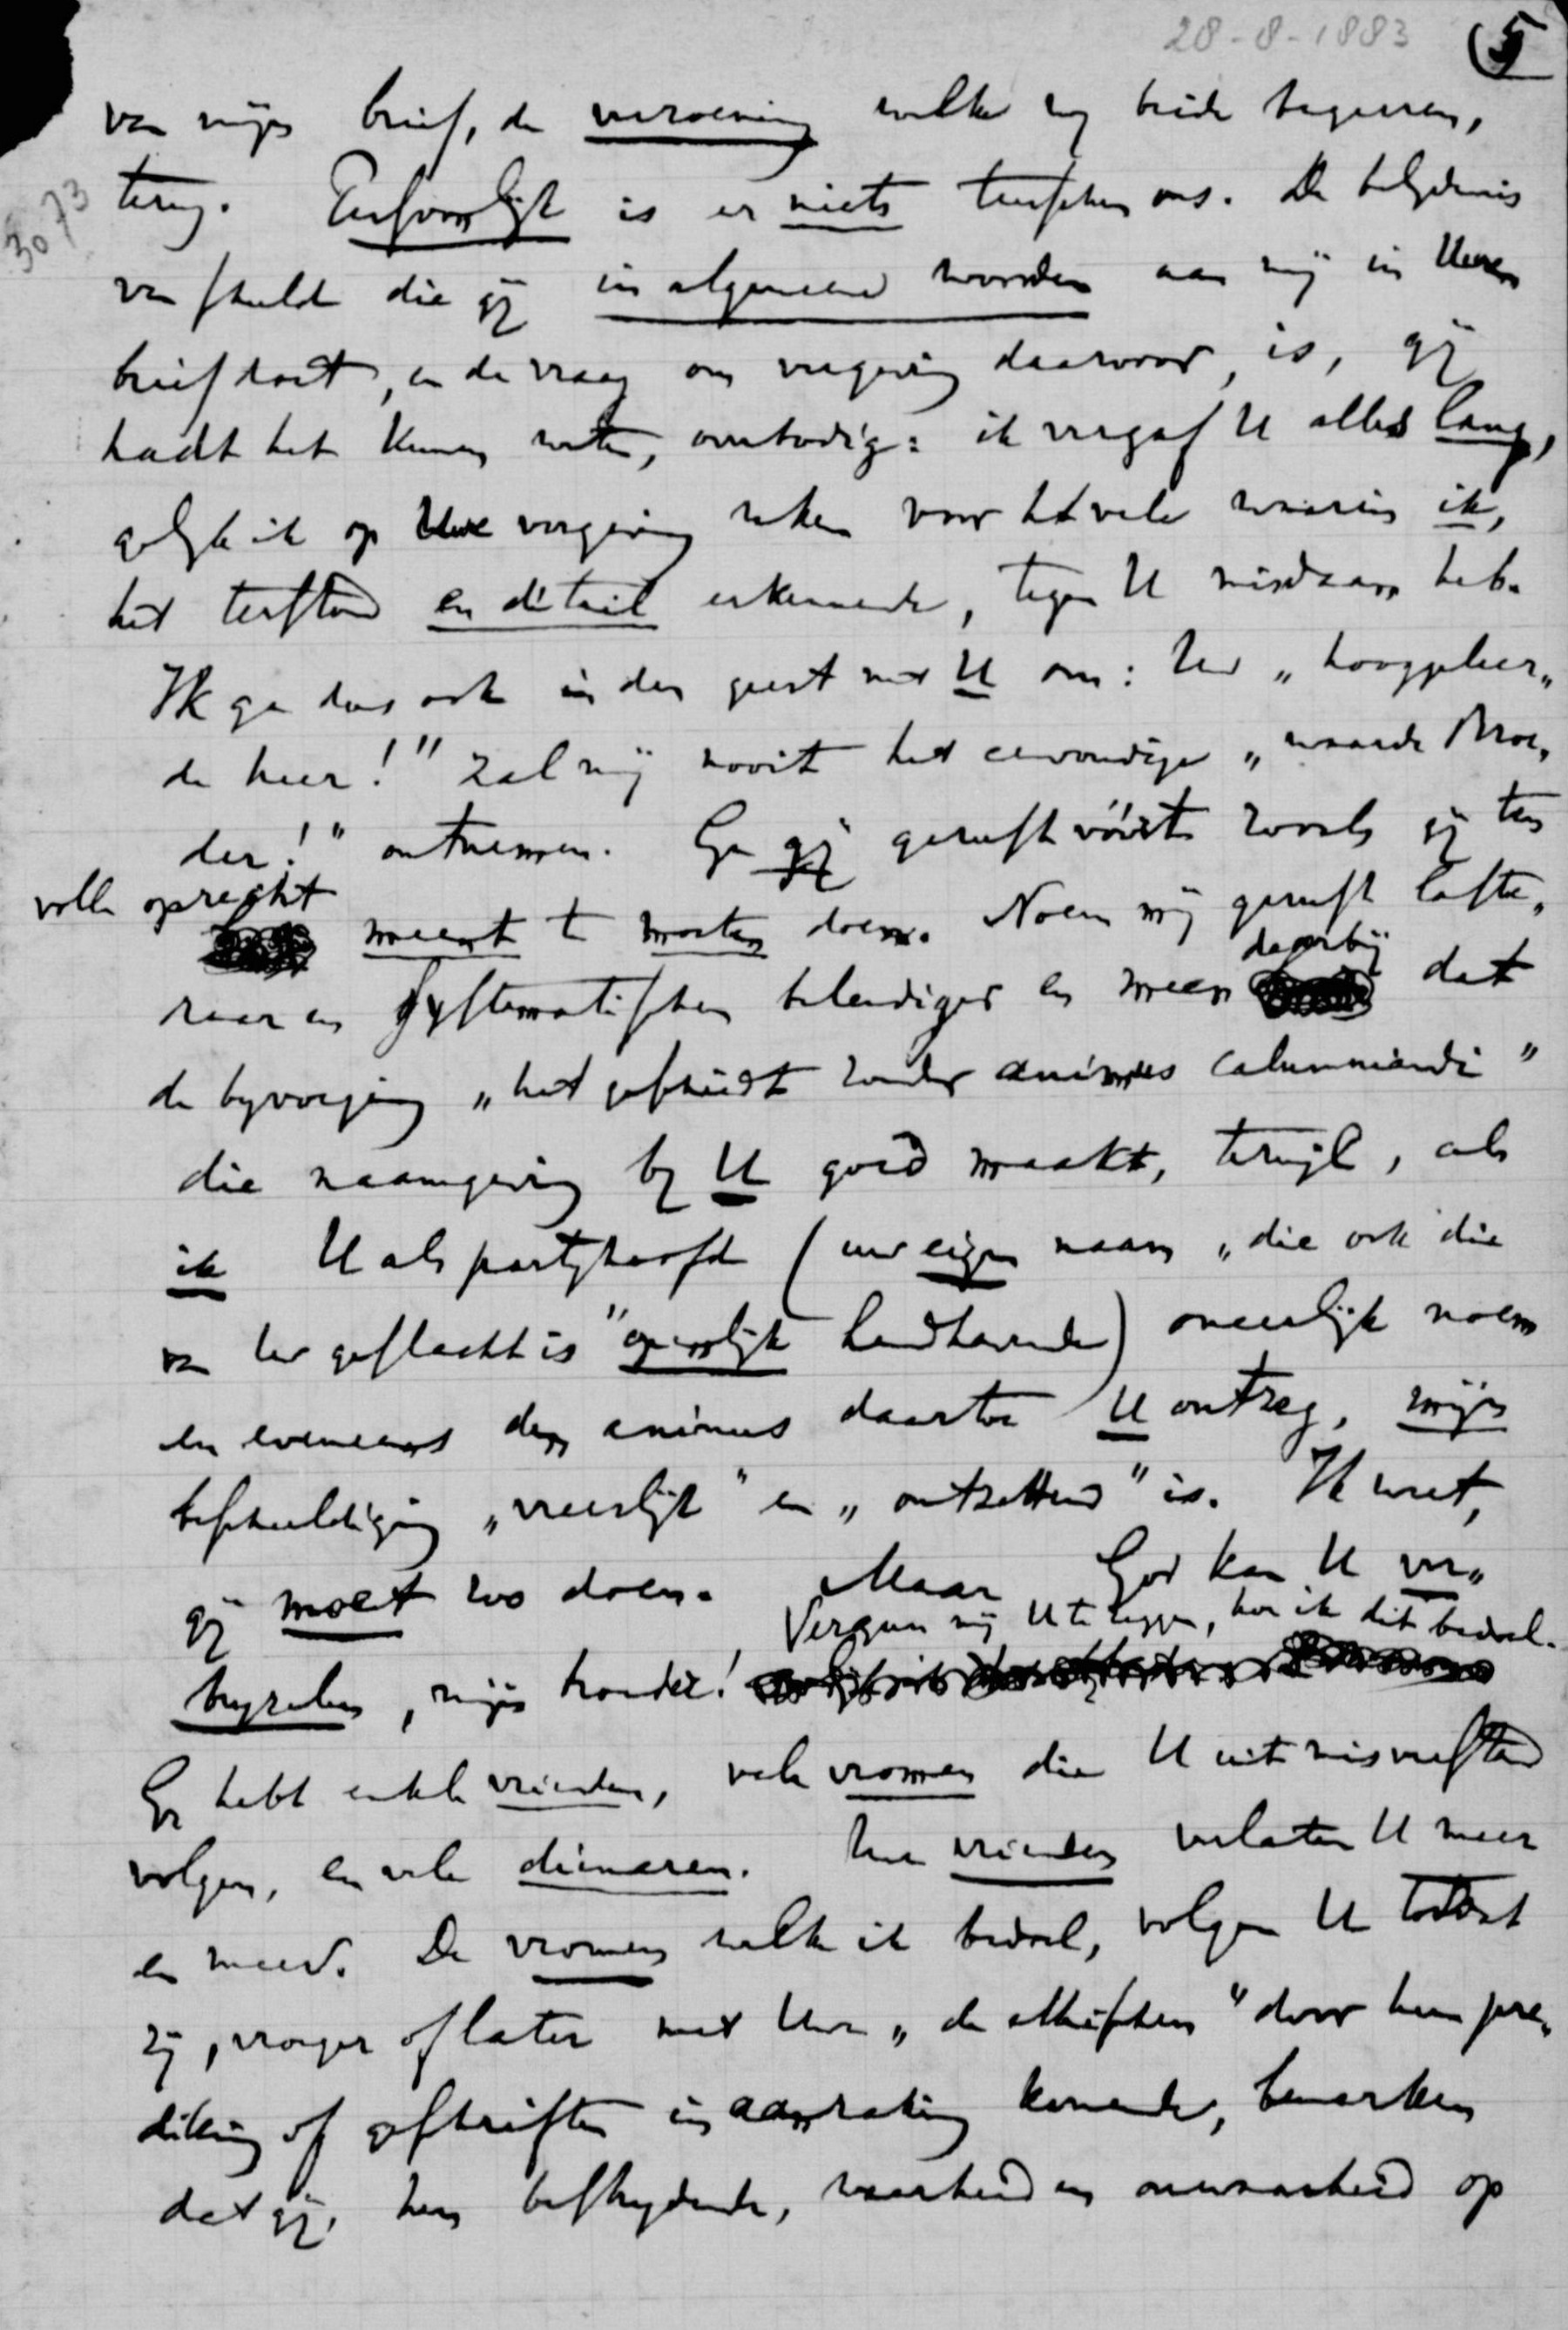 28-8-1883 (5
3073
van mijn brief, de verzoening welke wij beide begeeren,
terug. Persoonlijk is er niets tusschen ons. De belijdenis
van schuld die gij in algemeene woorden aan mij in Uwen
brief doet, en de vraag om vergeving daarvoor, is, gij
hadt het kunnen weten, overbodig: ik vergaf U alles lang,
gelijk ik op Uwe vergeving reken voor het vele waarin ik,
het terstond en détail erkennende, tegen U misdaan heb.
Ik ga dus ook in den geest met U om: Uw „hooggeleer„
de heer!” zal mij nooit het eenvoudige „waarde Broe„
der!” ontnemen. Ga gij gerust voort zooals gij ten
volle oprecht
meent te moeten doen. Noem mij gerust laste„
raar en systematischen beleediger en meen daarbij dat
de bijvoeging „het geschiedt zonder animus calumniandi”
die naamgeving bij U goed maakt, terwijl, als
ik U als partijhoofd (uw eigen naam „die ook die
van Uw geslacht is” openlijk handhavende) oneerlijk noem
en eveneens den animus daartoe U ontzeg, mijn
beschuldiging „vreeslijk” en „ontzettend” is. Ik weet,
gij moet zoo doen. Maar God kan U ver„
Vergun mij U te zeggen, hoe ik dit bedoel.
brijzelen, mijn broeder!
Gij hebt enkele vrienden, vele vromen die U uit misverstand
volgen, en vele dienaren. Uwe vrienden verlaten U meer
en meer. De vromen welke ik bedoel, volgen U totdat
zij, vroeger of later met Uwe „de ethischen” door hun pre„
diking of geschriften in aanraking komende, bemerken
dat gij, hen bestrijdende, waarheid en onwaarheid op